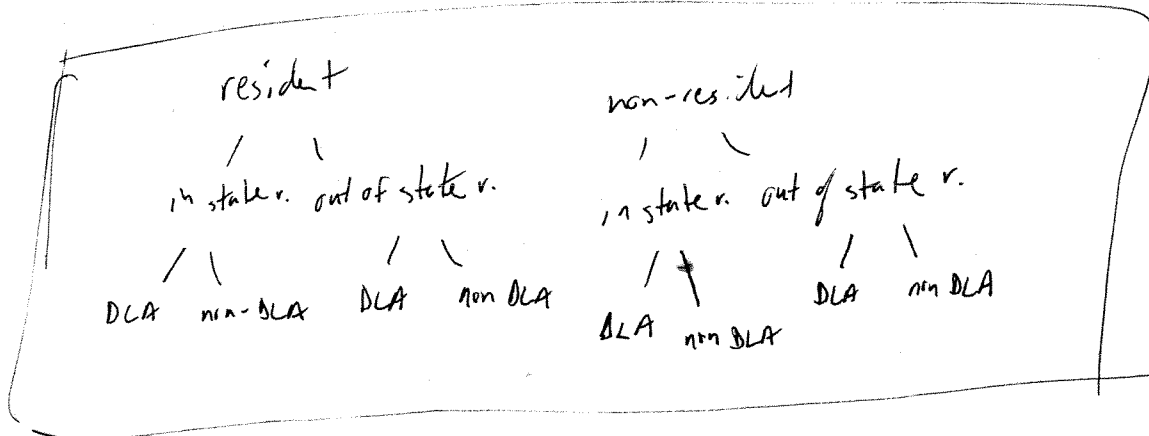 resident non-resident
in state r. out of state r. in state r. out of state r.
DLA non-DLA DLA non DLA DLA non DLA DLA non DLA